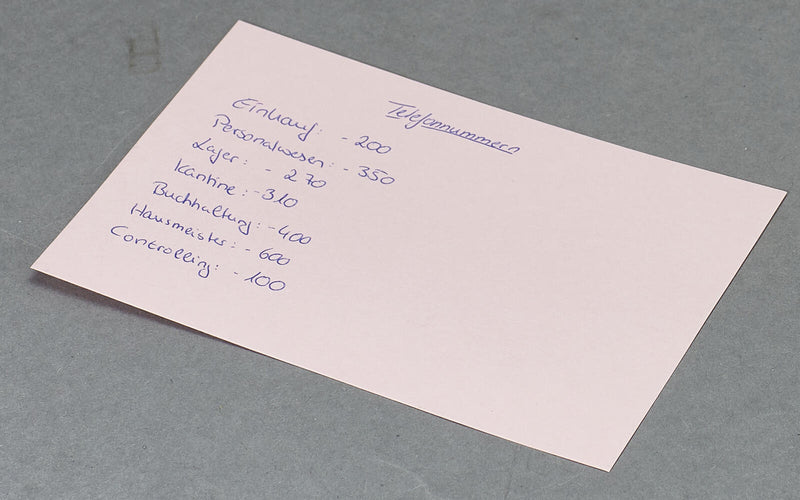 Telefonnummern
Einkauf: - 200
Personalwesen: - 350
Lager: - 270
Kantine: - 310
Buchhaltung: - 400
Hausmeister: - 600
Controlling: - 100